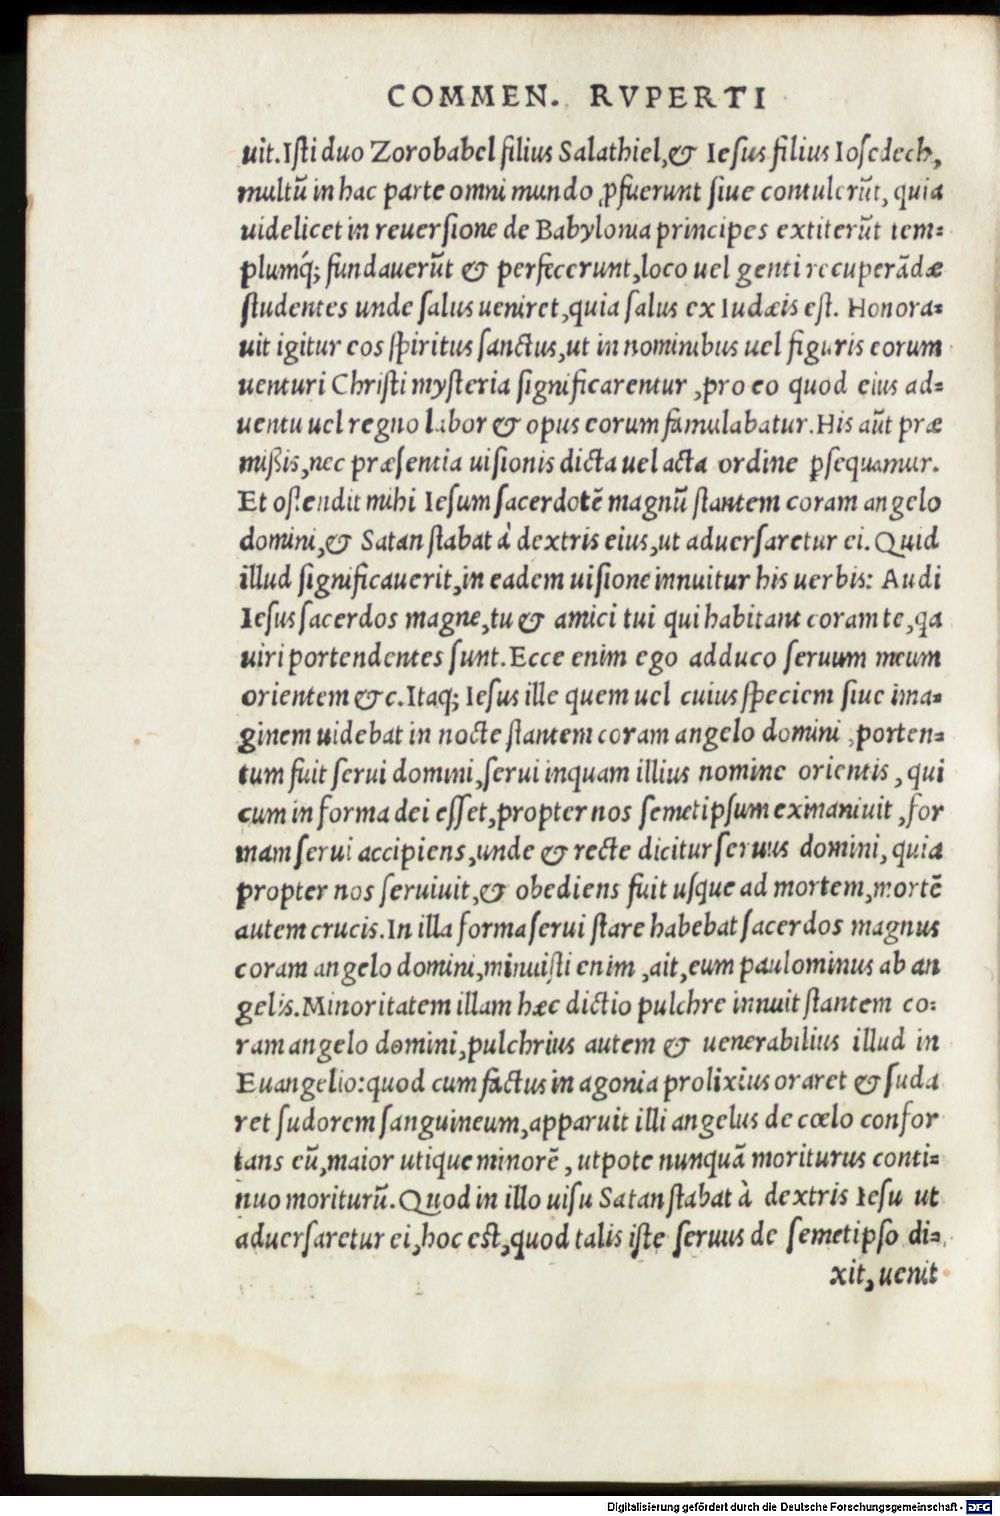 COMMEN. RVPERTI
uit. Isti duo Zorobabel filius Salathiel, & Iesus filius Iosedech,
multũ in hac parte omni mundo ꝓfuerunt siue contulerũt, quia
uidelicet in reuersione de Babylonia principes extiterũt tem=
plumq́; fundauerũt & perfecerunt, loco uel genti recuperãdæ
studentes unde salus ueniret, quia salus ex Iudæis est. Honora=
uit igitur eos spiritus sanctus, ut in nominibus uel figuris eorum
uenturi Christi mysteria significarentur, pro eo quod eius ad=
uentu uel regno labor & opus eorum famulabatur. His aũt præ
mißis, nec præsentia uisionis dicta uel acta ordine ꝑsequamur.
Et ostendit mihi Iesum sacerdotẽ magnũ stantem coram angelo
domini, & Satan stabat à dextris eius, ut aduersaretur ei. Quid
illud significauerit, in eadem uisione innuitur his uerbis: Audi
Iesus sacerdos magne, tu & amici tui qui habitant coram te, qa
uiri portendentes sunt. Ecce enim ego adduco seruum meum
orientem &c. Itaq; Iesus ille quem uel cuius speciem siue ima=
ginem uidebat in nocte stantem coram angelo domini, porten=
tum fuit serui domini, serui inquam illius nomine orientis, qui
cum in forma dei esset, propter nos semetipsum exinaniuit, for
mam serui accipiens, unde & recte dicitur seruus domini, quia
propter nos seruiuit, & obediens fuit usque ad mortem, mortẽ
autem crucis. In illa forma serui stare habebat sacerdos magnus
coram angelo domini, minuisti enim, ait, eum paulominus ab an
gelis. Minoritatem illam hæc dictio pulchre innuit stantem co=
ram angelo domini, pulchrius autem & uenerabilius illud in
Euangelio: quod cum factus in agonia prolixius oraret & suda
ret sudorem sanguineum, apparuit illi angelus de cœlo confor
tans eũ, maior utique minorẽ, utpote nunquã moriturus conti=
nuo moriturũ. Quod in illo uisu Satan stabat à dextris Iesu ut
aduersaretur ei, hoc est, quod talis iste seruus de semetipso di=
xit, uenit
Digitalisierung gefördert durch die Deutsche Forschungsgemeinschaft - DFG